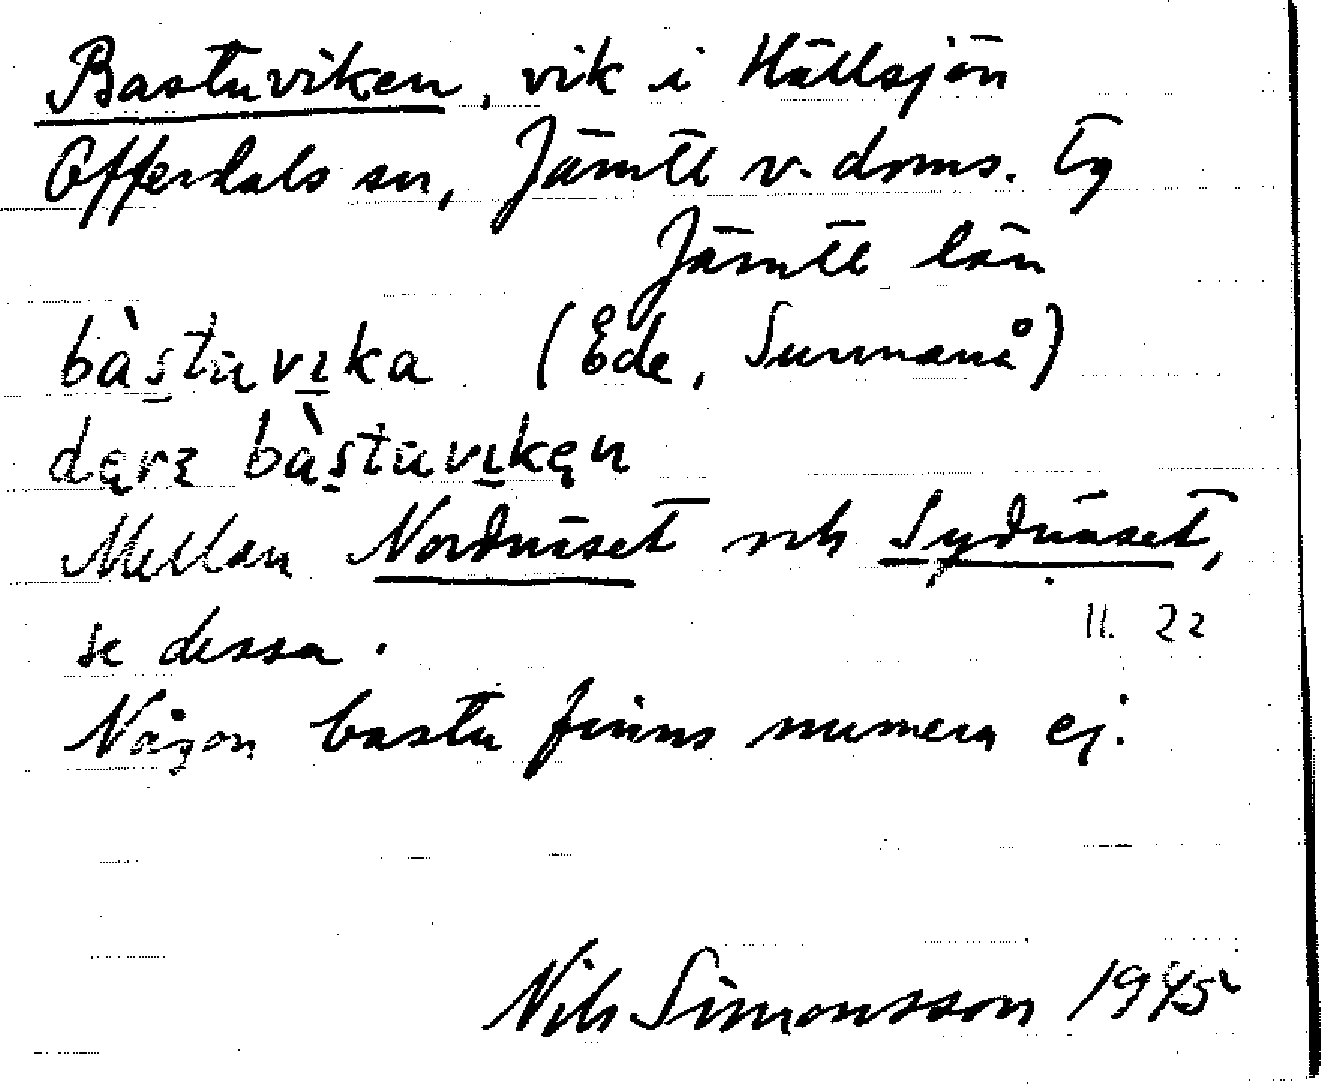 Bastuviken, vik i Hällsjön
Offerdals sn, Jämtl v. doms. tg
Jämtl län
bàstuvɪka (Ede, Sunnanå)
dęrę bàstuvɪkęn
Mellan Nordnäset och Sydnäset,
se dessa.
11. 22
Någon bastu finns numera ej.
Nils Simonsson 1945